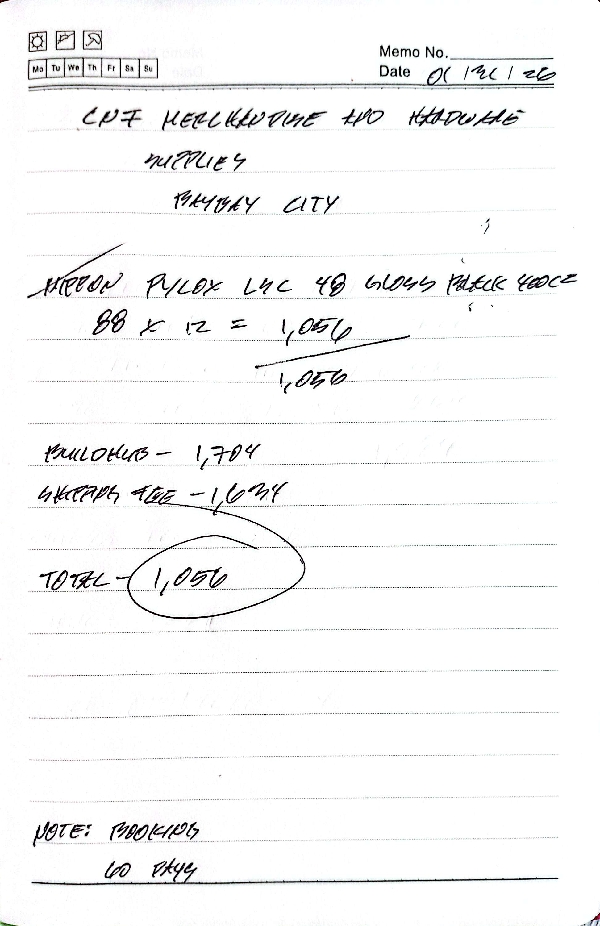 Mo Tu We Th Fr Sa Su
Memo No.
Date 01/31/26
CNF MERCHANDISE AND HARDWARE
SUPPLIES
BAYBAY CITY
NIPPON PYLOX LAC 48 GLOSS BLACK 400CC
88 X 12 = 1,056
1,056
BUILDHUB - 1,704
FEE - 1,634
TOTAL - 1,056
NOTE: BOOKING
60 DAYS